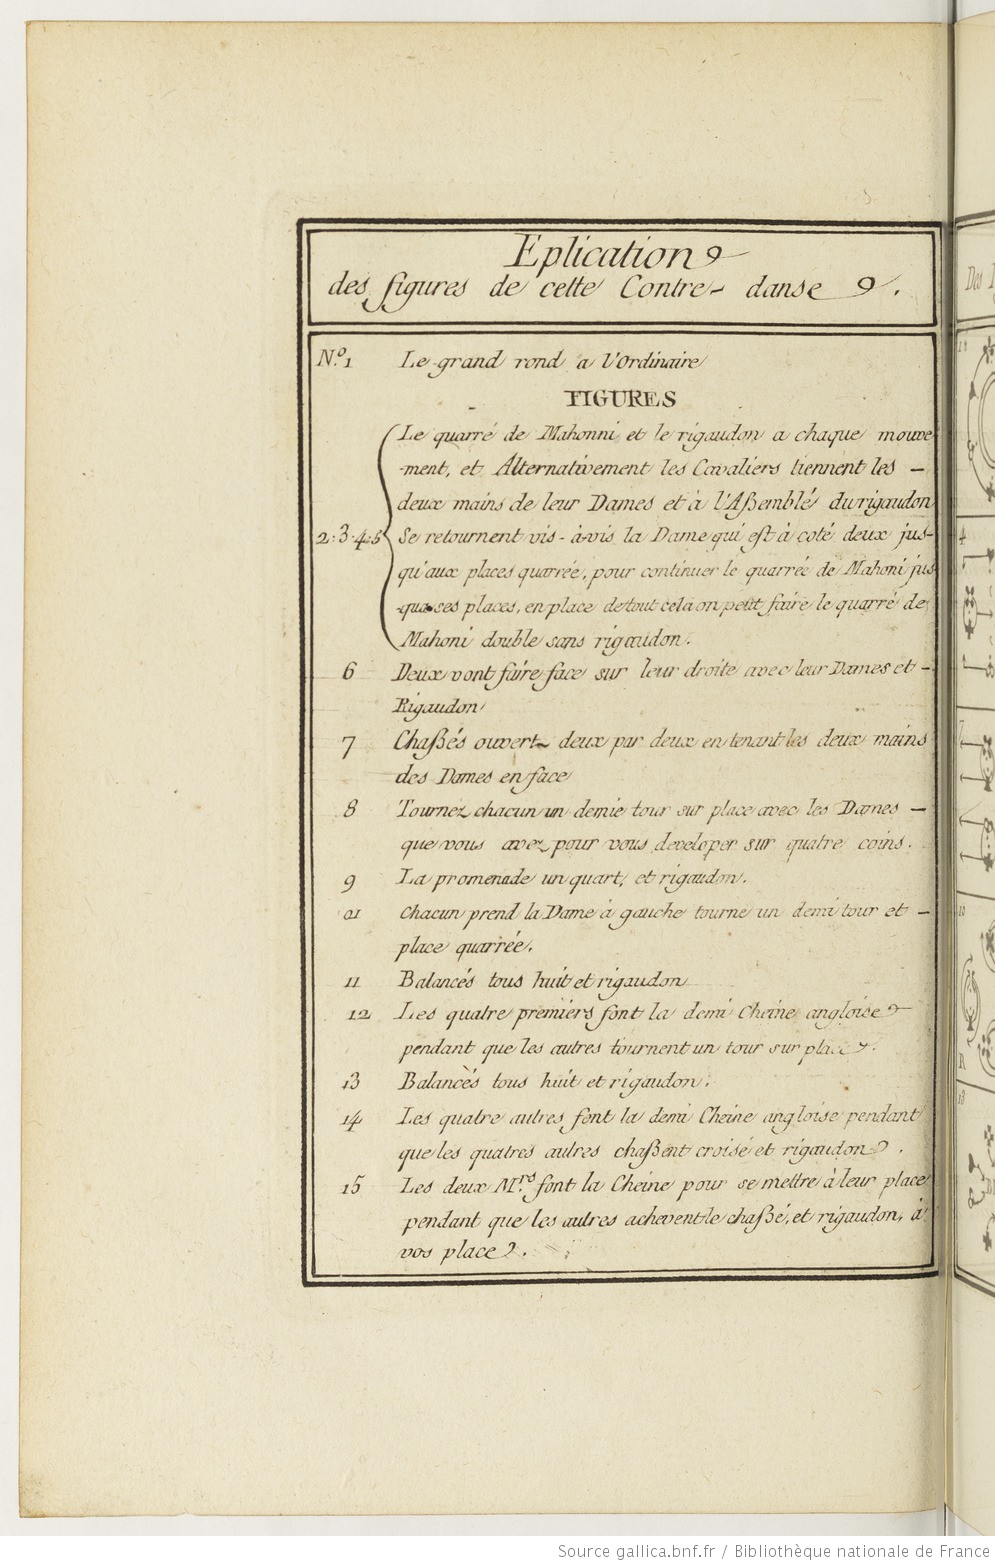 Eplication
des figures de cette Contre- danse.
N.º 1 Le grand rond a l'Ordinaire
FIGURES
Le quarré de Mahonni et le rigaudon a chaque mouve
-ment, et Alternativement les Cavaliers tiennent les -
deux mains de leur Dames et à l'Aßemblé du rigaudon
2.3.4.5 Se retournent vis-à-vis la Dame qui est à coté deux jus-
qu'aux places quarrée, pour continuer le quarrée de Mahoni jus
-qua ses places, en place de tout cela on peut faire le quarré de
Mahoni double sans rigaudon.
6 Deux vont faire face sur leur droite avec leur Dames et -
Rigaudon
7 Chaßés ouvert deux par deux en tenant les deux mains
des Dames en face
8 Tournez chacun un demie tour sur place avec les Dames -
que vous avez pour vous developer sur quatre coins.
9 La promenade un quart, et rigaudon.
01 Chacun prend la Dame à gauche tourne un demi tour et -
place quarrée.
11 Balancés tous huit et rigaudon
12 Les quatre premiérs font la demi Cheine angloise
pendant que les autres tournent un tour sur place.
13 Balancès tous huit et rigaudon.
14 Les quatre autres font la demi Cheine angloise pendant
que les quatres autres chaßent croisé et rigaudon.
15 Les deux M.rs font la Cheine pour se mettre à leur place
pendant que les autres achevent le chaßé, et rigaudon, à
vos place.
Source gallica.bnf.fr / Bibliothèque nationale de France